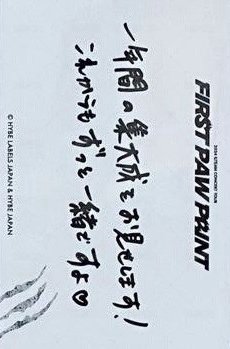 2024 &TEAM CONCERT TOUR
FIRST PAW PRINT
一年間の集大成をお見せします!
これからもずっと一緒ですよ♡
© HYBE LABELS JAPAN & HYBE JAPAN